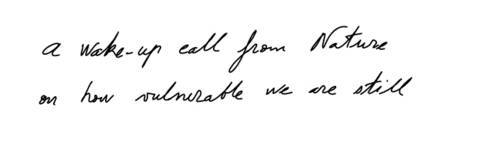 a wake-up call from Nature
on how vulnerable we are still